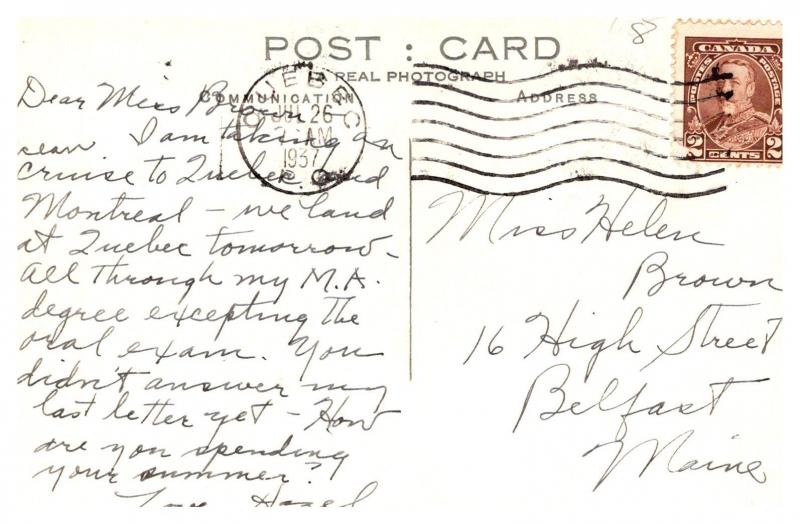 8
POST : CARD
A REAL PHOTOGRAPH
COMMUNICATION
ADDRESS
QUEBEC
JUL 26
AM
1937
CANADA
POSTES
POSTAGE
2 CENTS 2
Dear Miss Brown
I am taking an
ocean
cruise to Quebec and
Montreal - we land
at Quebec tomorrow.
All through my M.A.
degree excepting the
oral exam. You
didn't answer my
last letter yet - How
are you spending
your summer?
Love Hazel
Miss Helen
Brown
16 High Street
Belfast
Maine